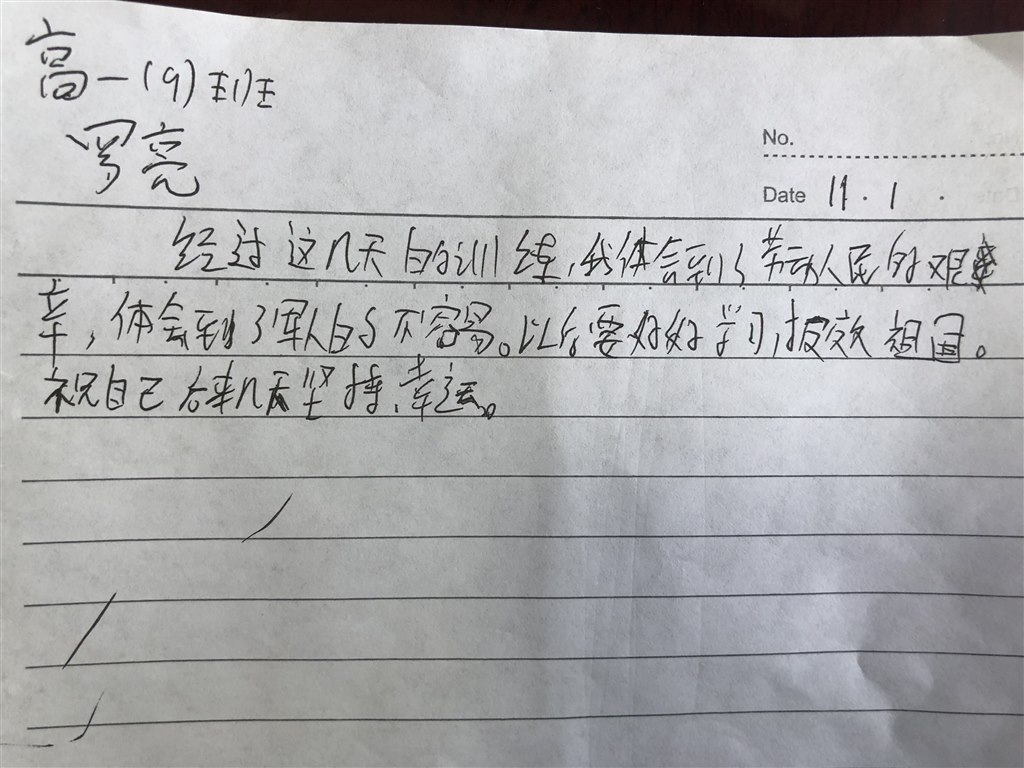 高一(9)班
罗亮
No.
Date 11.1.
经过这几天的训练,我体会到了劳动人民的艰
辛,体会到了军人的不容易。以后要好好学习,报效祖国。
祝自己后来几天坚持,幸运。